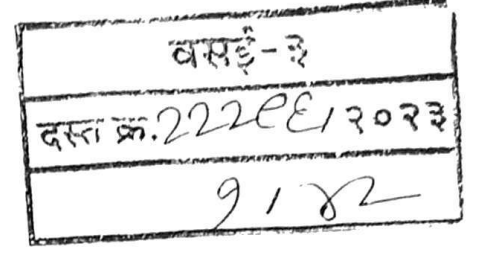 वसई-३
दस्त क्र. 222९६/२०२३
१/४२